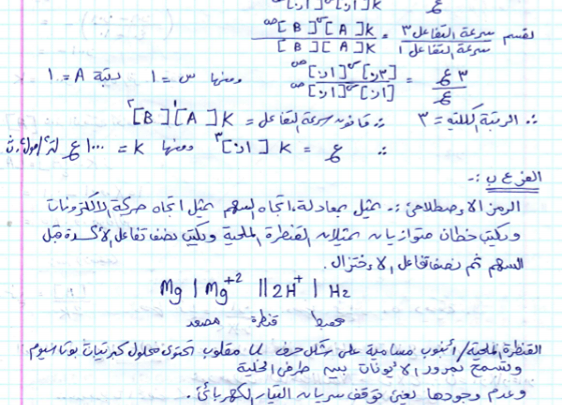 نقسم سرعة التفاعل ٣ / سرعة التفاعل ١ = K [A]س [B]ص / K [A]س [B]ص
٣ع / ع = [٠,٣]س [٠,١]ص / [٠,١]س [٠,١]ص ومنها س = ١ رتبة A = ١
∴ الرتبة الكلية = ٣ ∴ قانون سرعة التفاعل = K [A]¹ [B]²
∴ ع = K [٠,١]³ ومنها K = ١٠٠٠ ع لتر²/مول².ث
الفرع ب :-
الرمز الاصطلاحي :- تمثيل بمعادلة، اتجاه السهم يمثل اتجاه حركة الالكترونات
ويكتب خطان متوازيان يمثلان القنطرة الملحية ويكتب نصف تفاعل الأكسدة قبل
السهم ثم نصف تفاعل الاختزال.
Mg | Mg+2 || 2H+ | H2
مصعد قنطرة مهبط
القنطرة الملحية/ أنبوب مسامية على شكل حرف U مقلوب تحتوي محلول كبريتات بوتاسيوم
وتسمح بمرور الأيونات بين طرفي الخلية
وعدم وجودها يعني توقف سريان التيار الكهربائي.